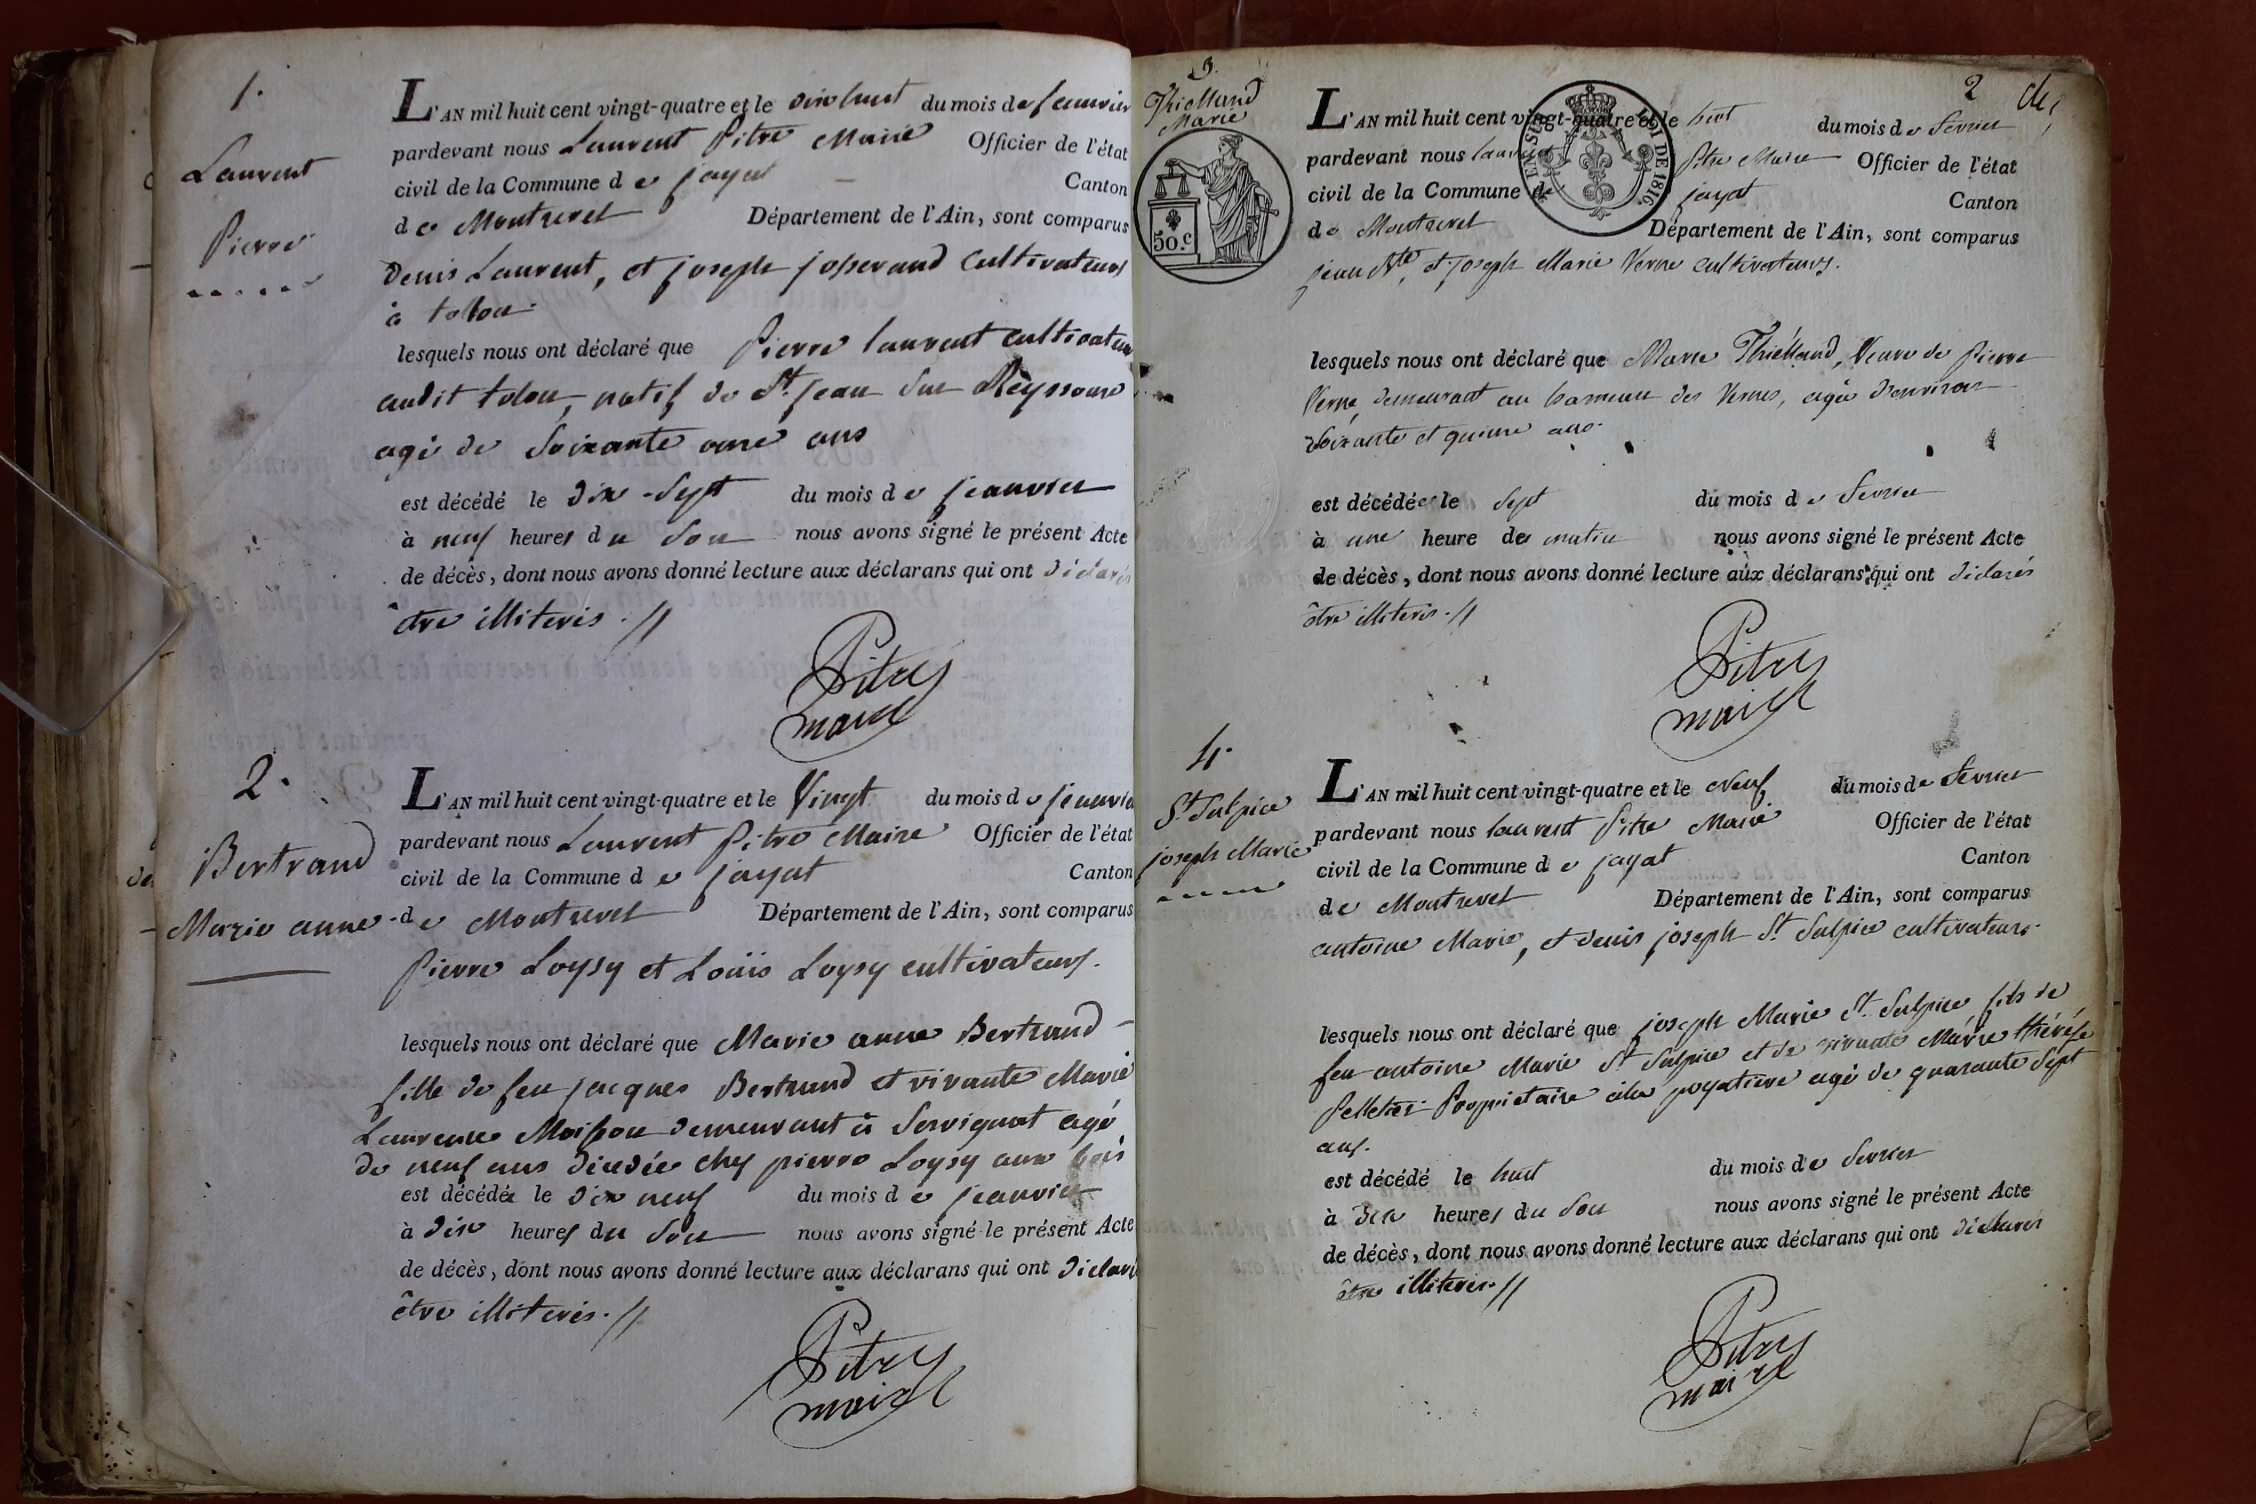 1.
Laurent
Pierre
L'AN mil huit cent vingt-quatre et le dix huit du mois de jeanvier
pardevant nous Laurent Pitre Maire Officier de l'état
civil de la Commune de jayat Canton
de Montrevel Département de l'Ain, sont comparus
Denis Laurent, et joseph josserand Cultivateurs
à tolon
lesquels nous ont déclaré que Pierre laurent cultivateur
audit tolon, natif de St. jean sur Reyssouze
agé de Soixante onze ans
est décédé le dix-Sept du mois de jeanvier
à neuf heures du Soir nous avons signé le présent Acte
de décès, dont nous avons donné lecture aux déclarans qui ont déclarés
être illiterés. //
Pitre
maire
2.
Bertrand
Marie anne
L'AN mil huit cent vingt-quatre et le Vingt du mois de jeanvier
pardevant nous Laurent Pitre Maire Officier de l'état
civil de la Commune de jayat Canton
de Montrevel Département de l'Ain, sont comparus
Pierre Loysy et Loüis Loysy cultivateurs.
lesquels nous ont déclaré que Marie anne Bertrand
fille de feu jacques Bertrand et vivante Marie
Laurence Moisson demeurant à Servignat agé
de neuf ans décédée chez pierre Loysy aux bois
est décédée le dix neuf du mois de jeanvier
à dix heures du Soir nous avons signé le présent Acte
de décès, dont nous avons donné lecture aux déclarans qui ont déclaré
être illiterés. //
Pitre
maire
2
3.
Thielland
Marie
50.c
LOI DE 1816.
L'AN mil huit cent vingt-quatre et le huit du mois de fevrier
pardevant nous laurent Pitre Maire Officier de l'état
civil de la Commune de jayat Canton
de Montrevel Département de l'Ain, sont comparus
jean Bte, et joseph Marie Verne cultivateurs.
lesquels nous ont déclaré que Marie Thielland, Veuve de Pierre
Verne, demeurant au hameau des Vernes, agée d'environ
soixante et quinze ans.
est décédée le Sept du mois de fevrier
à une heure de matin nous avons signé le présent Acte
de décès, dont nous avons donné lecture aux déclarans qui ont déclarés
être illiterés. //
Pitre
maire
4.
St. Sulpice
joseph Marie
L'AN mil huit cent vingt-quatre et le neuf du mois de fevrier
pardevant nous laurent Pitre Maire Officier de l'état
civil de la Commune de jayat Canton
de Montrevel Département de l'Ain, sont comparus
antoine Marie, et denis joseph St. Sulpice cultivateurs.
lesquels nous ont déclaré que joseph Marie St. Sulpice fils de
feu antoine Marie St. Sulpice et de vivante Marie thérése
Pelletier Propriétaire à la poyatiere agé de quarante Sept
ans.
est décédé le huit du mois de fevrier
à dix heures du Soir nous avons signé le présent Acte
de décès, dont nous avons donné lecture aux déclarans qui ont déclarés
être illiterés. //
Pitre
maire